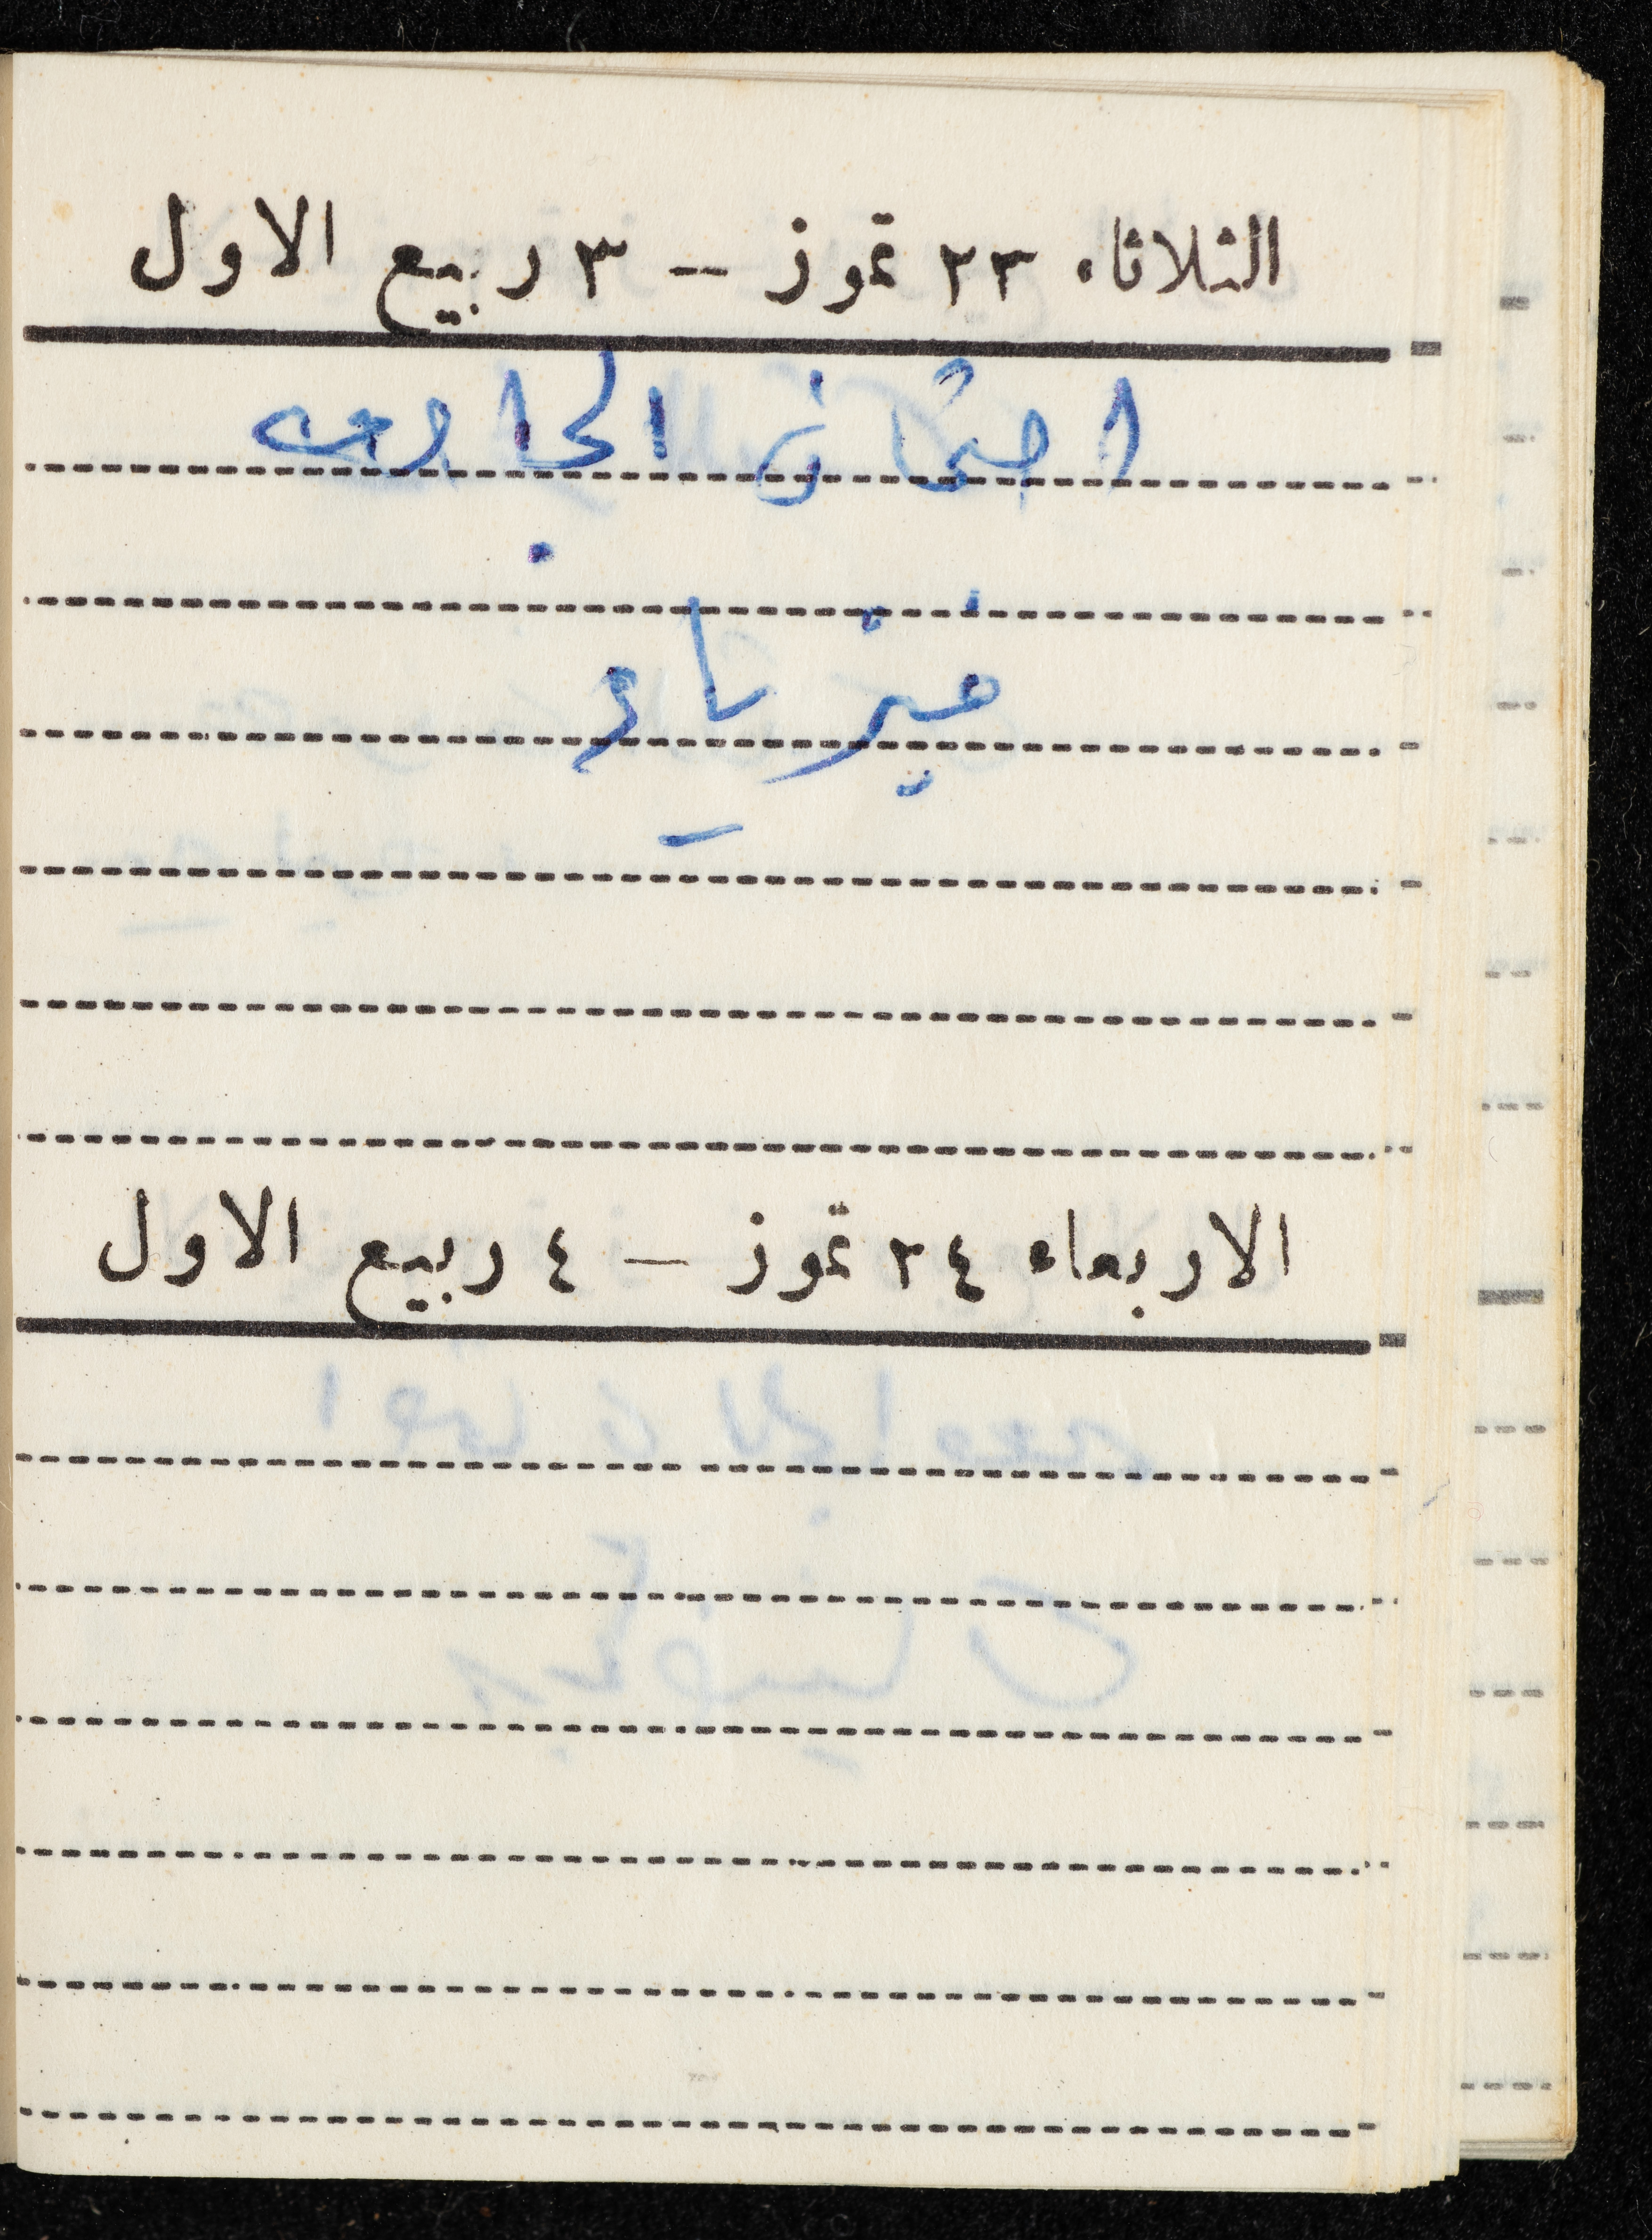 الثلاثاء ٢٣ تموز — ٣ ربيع الاول
امتحان الجامعه
فيزياء
الاربعاء ٢٤ تموز — ٤ ربيع الاول